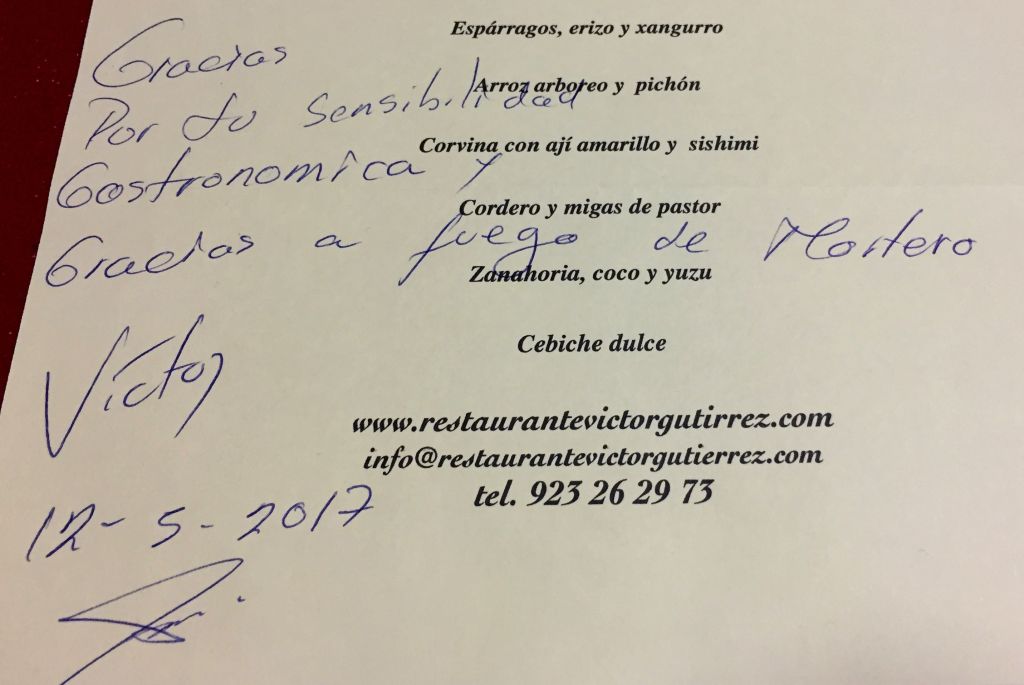 Espárragos, erizo y xangurro
Arroz arboreo y pichón
Corvina con ají amarillo y sishimi
Cordero y migas de pastor
Zanahoria, coco y yuzu
Cebiche dulce
www.restaurantevictorgutirrez.com
info@restaurantevictorgutierrez.com
tel. 923 26 29 73
Gracias
Por tu Sensibilidad
Gastronomica y
Gracias a fuego de Mortero
Victor
12-5-2017